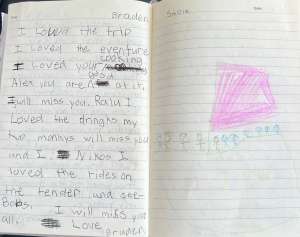 Braden
I Loved the trip
I Loved the eventure
I Loved your cooking
Alex you are best at it.
I will miss you. Raiu I
Loved the dringks my
two monkys will miss you
and I. Nikos I
loved the rides on
the tender and see-
Bobs. I will miss you
all. Love Braden
Sadie